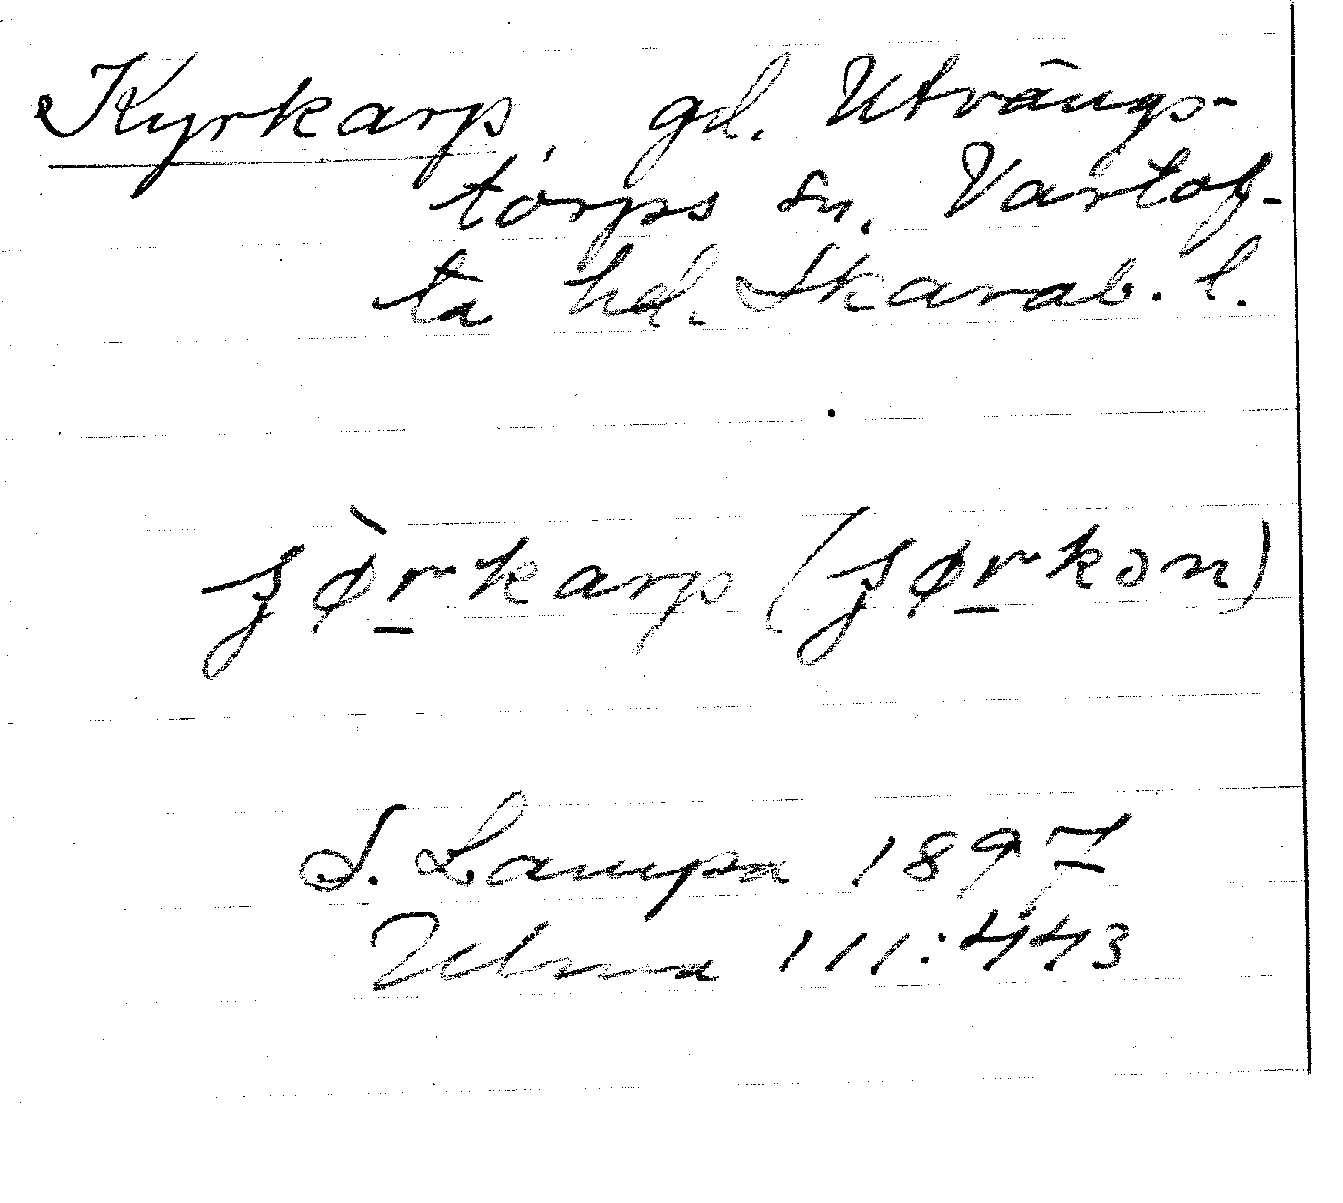 Kyrkarp, gd. Utvängs-
torps sn, Vartof-
ta hd. Skarab. l.
ʒø̀r̲karp (ʒør̲kən)
S. Lampa 1897
Ulma 111:443